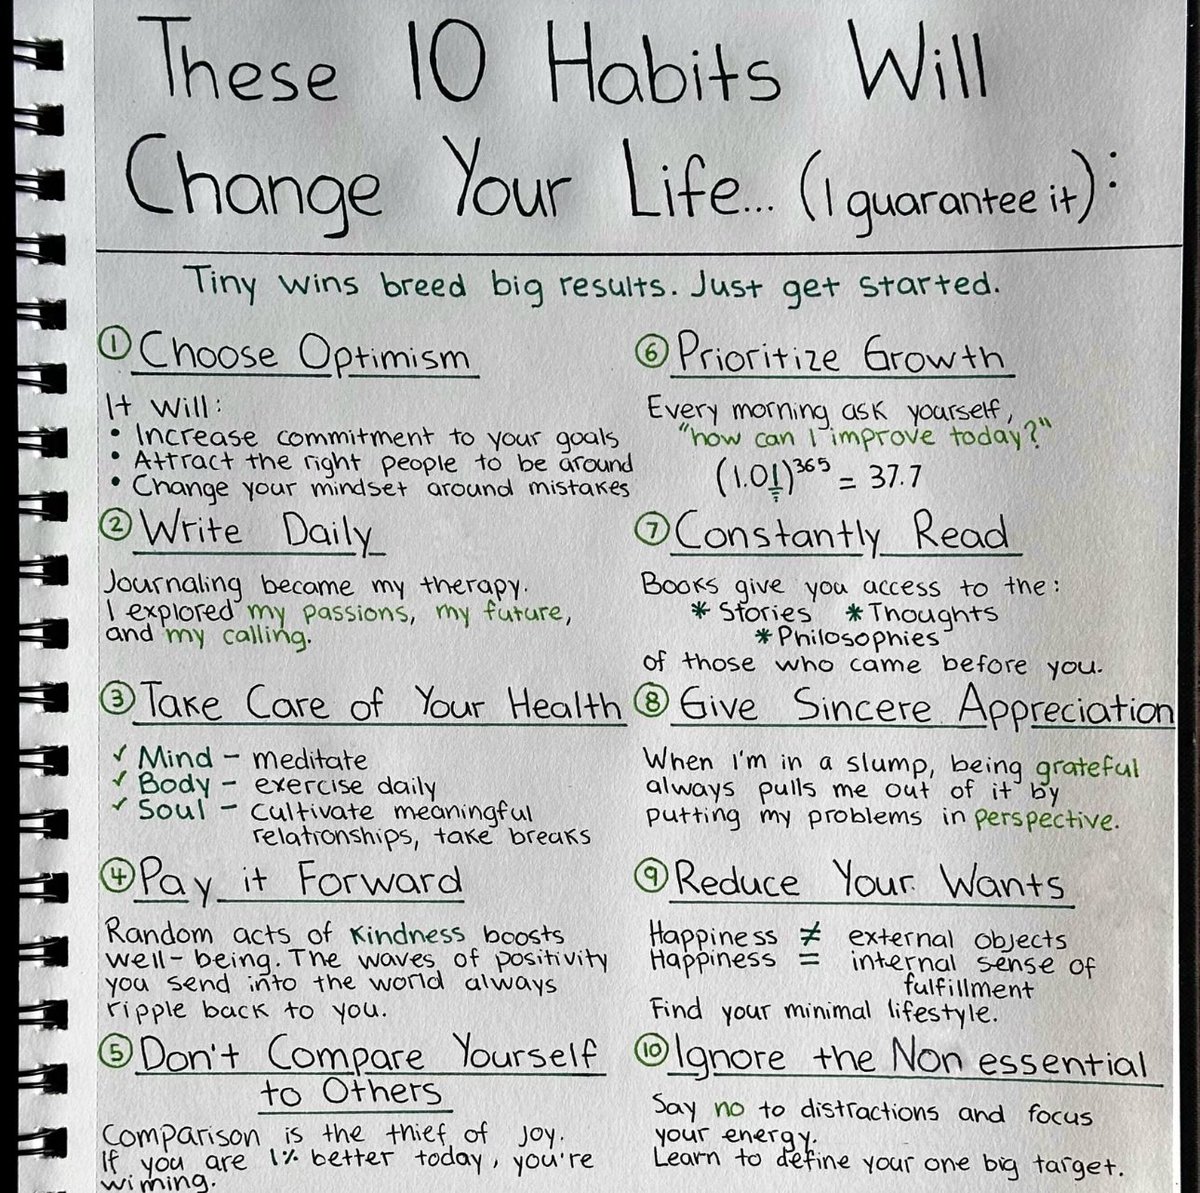 These 10 Habits Will
Change Your Life... (I guarantee it):
Tiny wins breed big results. Just get started.
① Choose Optimism
It will:
• Increase commitment to your goals
• Attract the right people to be around
• Change your mindset around mistakes
② Write Daily
Journaling became my therapy.
I explored my passions, my future,
and my calling.
③ Take Care of Your Health
✓ Mind - meditate
✓ Body - exercise daily
✓ Soul - cultivate meaningful
relationships, take breaks
④ Pay it Forward
Random acts of kindness boosts
well-being. The waves of positivity
you send into the world always
ripple back to you.
⑤ Don't Compare Yourself
to Others
Comparison is the thief of joy.
If you are 1% better today, you're
wiming.
⑥ Prioritize Growth
Every morning ask yourself,
"how can I improve today?"
(1.01)³⁶⁵ = 37.7
⑦ Constantly Read
Books give you access to the:
* Stories * Thoughts
* Philosophies
of those who came before you.
⑧ Give Sincere Appreciation
When I'm in a slump, being grateful
always pulls me out of it by
putting my problems in perspective.
⑨ Reduce Your Wants
Happiness ≠ external objects
Happiness = internal sense of
fulfillment
Find your minimal lifestyle.
⑩ Ignore the Non essential
Say no to distractions and focus
your energy.
Learn to define your one big target.